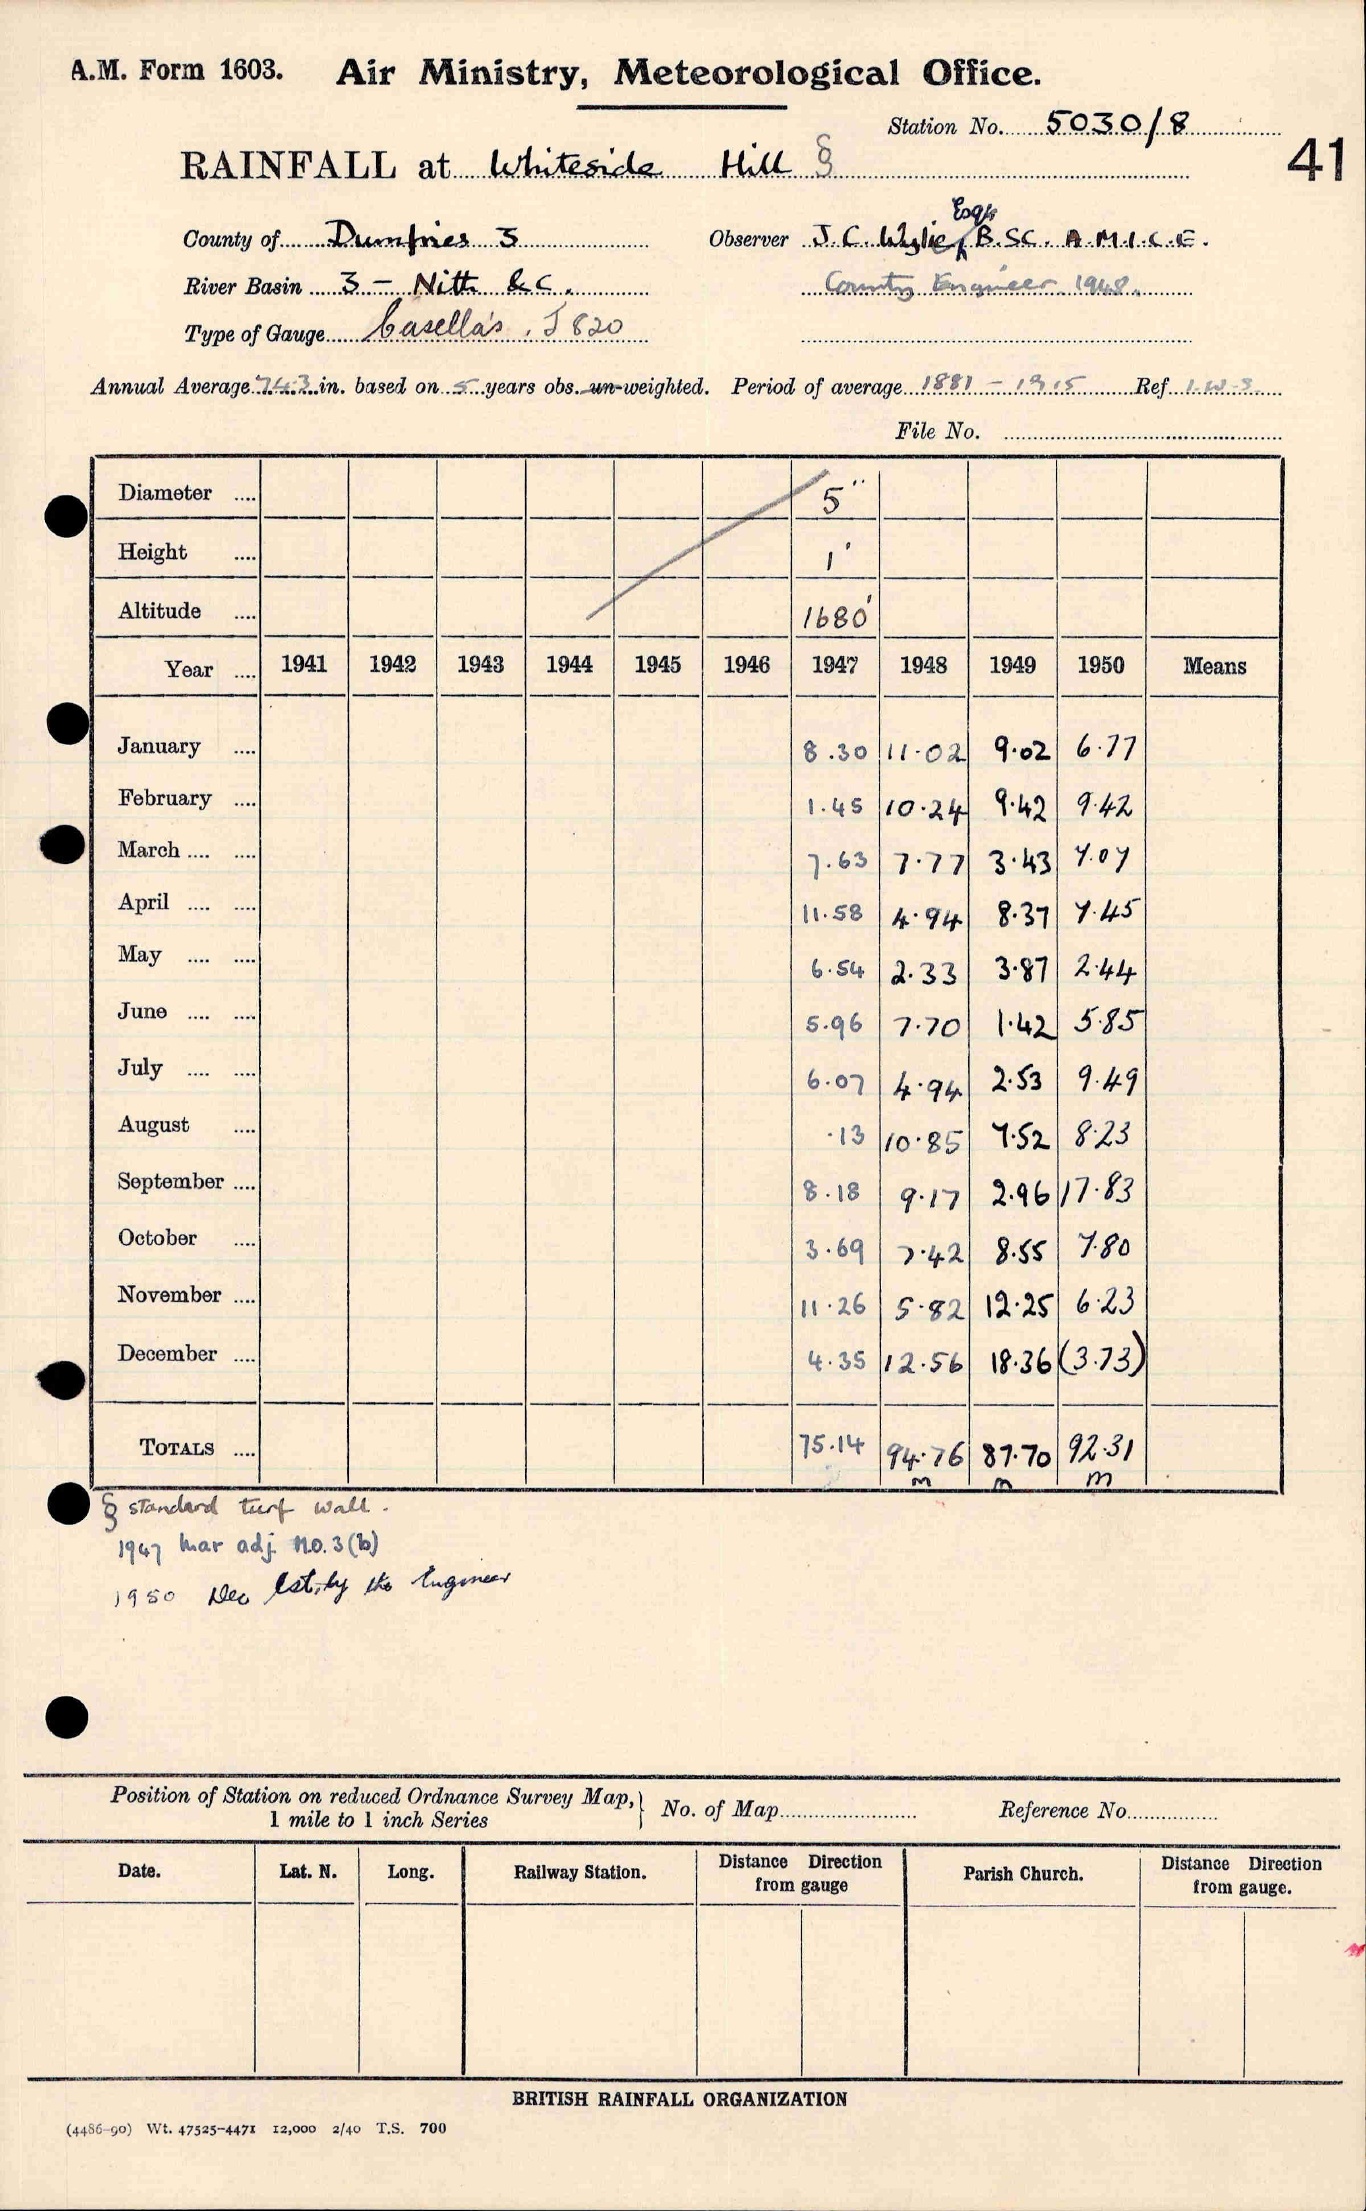 A.M. Form 1603. Air Ministry, Meteorological Office.
Station No. 5030/8
41
RAINFALL at Whiteside Hill §
County of Dumfries 3 Observer J. C. Wylie, Esqr B.SC. A.M.I.C.E.
River Basin 3 - Nith &c. County Engineer. 1948.
Type of Gauge Casella's. J 820
Annual Average 74.3 in. based on 5 years obs. un-weighted. Period of average 1881 - 1915 Ref I.W.3.
File No.
Diameter .... 5"
Height .... 1'
Altitude .... 1680'
Year .... 1941 1942 1943 1944 1945 1946 1947 1948 1949 1950 Means
January .... 8.30 11.02 9.02 6.77
February .... 1.45 10.24 9.42 9.42
March .... .... 7.63 7.77 3.43 7.07
April .... .... 11.58 4.94 8.37 7.45
May .... .... 6.54 2.33 3.87 2.44
June .... .... 5.96 7.70 1.42 5.85
July .... .... 6.07 4.94 2.53 9.49
August .... .13 10.85 7.52 8.23
September .... 8.18 9.17 2.96 17.83
October .... 3.69 7.42 8.55 7.80
November .... 11.26 5.82 12.25 6.23
December .... 4.35 12.56 18.36 (3.73)
TOTALS .... 75.14 94.76 87.70 92.31
m m m
§ standard turf wall.
1947 Mar adj M.O.3(b)
1950 Dec Est. by the Engineer
Position of Station on reduced Ordnance Survey Map, 1 mile to 1 inch Series } No. of Map Reference No.
Date. Lat. N. Long. Railway Station. Distance Direction from gauge Parish Church. Distance Direction from gauge.
BRITISH RAINFALL ORGANIZATION
(4486-90) Wt. 47525-4471 12,000 2/40 T.S. 700